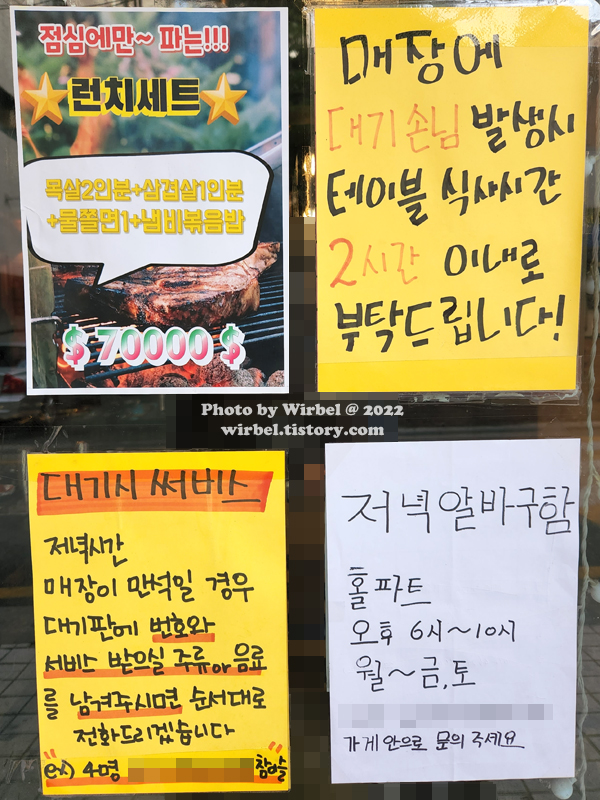 점심에만~ 파는!!!
런치세트
목살2인분+삼겹살1인분
+물쫄면1+냄비볶음밥
$ 70000 $
매장에
대기손님 발생시
테이블 식사시간
2시간 이내로
부탁드립니다!
Photo by Wirbel @ 2022
wirbel.tistory.com
대기시 써비스
저녁시간
매장이 만석일 경우
대기판에 번호와
서비스 받으실 주류or음료
를 남겨주시면 순서대로
전화드리겠습니다
ex) 4명 참이슬
저녁알바구함
홀파트
오후 6시~10시
월~금,토
가게 안으로 문의 주세요